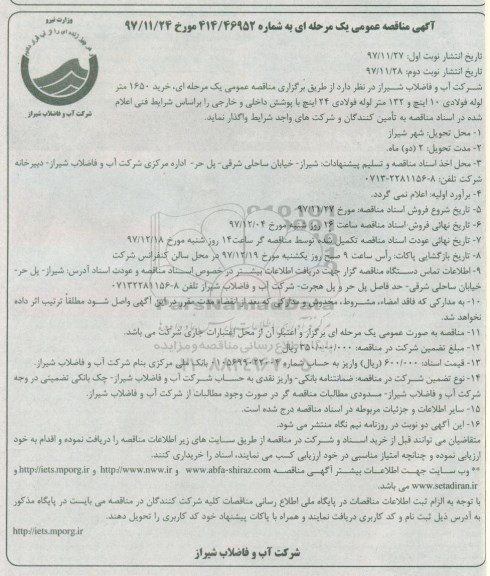 آگهی مناقصه عمومی یک مرحله ای به شماره ۴۱۴/۴۶۹۵۲ مورخ ۹۷/۱۱/۲۴
وزارت نیرو
شرکت آب و فاضلاب شیراز
تاریخ انتشار نوبت اول: ۹۷/۱۱/۲۷
تاریخ انتشار نوبت دوم: ۹۷/۱۱/۲۸
شرکت آب و فاضلاب شیراز در نظر دارد از طریق برگزاری مناقصه عمومی یک مرحله ای، خرید ۱۶۵۰ متر
لوله فولادی ۱۰ اینچ و ۱۳۲ متر لوله فولادی ۲۴ اینچ با پوشش داخلی و خارجی را براساس شرایط فنی اعلام
شده در اسناد مناقصه به تأمین کنندگان و شرکت های واجد شرایط واگذار نماید.
۱- محل تحویل: شهر شیراز
۲- مدت تحویل: ۲ (دو) ماه.
۳- محل اخذ اسناد مناقصه و تسلیم پیشنهادات: شیراز- خیابان ساحلی شرقی- پل حر- اداره مرکزی شرکت آب و فاضلاب شیراز- دبیرخانه
شرکت تلفن: ۸-۰۷۱۳۲۲۸۱۱۵۶
۴- برآورد اولیه: اعلام نمی گردد.
۵- تاریخ شروع فروش اسناد مناقصه: مورخ ۹۷/۱۱/۲۷
۶- تاریخ نهائی فروش اسناد مناقصه ساعت ۱۴ روز شنبه مورخ ۹۷/۱۲/۰۴
۷- تاریخ نهائی عودت اسناد مناقصه تکمیل شده توسط مناقصه گر ساعت ۱۴ روز شنبه مورخ ۹۷/۱۲/۱۸
۸- تاریخ بازگشایی پاکات: رأس ساعت ۹ صبح روز یکشنبه مورخ ۹۷/۱۲/۱۹ در محل سالن کنفرانس شرکت
۹- اطلاعات تماس دستگاه مناقصه گزار جهت دریافت اطلاعات بیشتر در خصوص اسناد مناقصه و عودت اسناد آدرس: شیراز- پل حر-
خیابان ساحلی شرقی- حد فاصل پل حر و پل هجرت- شرکت آب و فاضلاب شیراز تلفن ۸-۰۷۱۳۲۲۸۱۱۵۶
۱۰- به مدارکی که فاقد امضاء، مشروط، مخدوش و مدارکی که بعد از انقضاء مدت مقرر در این آگهی واصل شود مطلقاً ترتیب اثر داده
نخواهد شد.
۱۱- مناقصه به صورت عمومی یک مرحله ای برگزار و اعتبار آن از محل اعتبارات جاری شرکت می باشد.
۱۲- مبلغ تضمین شرکت در مناقصه: ۳۵۰/۰۰۰/۰۰۰ ریال
۱۳- قیمت اسناد: ۶۰۰/۰۰۰ (ریال) واریز به حساب شماره بانک ملی مرکزی بنام شرکت آب و فاضلاب شیراز.
۱۴- نوع تضمین شرکت در مناقصه: ضمانتنامه بانکی- واریز نقدی به حساب شرکت آب و فاضلاب شیراز- چک بانکی تضمینی در وجه
شرکت آب و فاضلاب شیراز- مسدودی مطالبات مناقصه گر در صورت وجود مطالبات از شرکت آب و فاضلاب شیراز.
۱۵- سایر اطلاعات و جزئیات مربوطه در اسناد مناقصه درج شده است.
۱۶- این آگهی دو نوبت در روزنامه نیم نگاه منتشر می شود.
متقاضیان می توانند قبل از خرید اسناد و شرکت در مناقصه از طریق سایت های زیر اطلاعات مناقصه را دریافت نموده و اقدام به خود
ارزیابی نموده و چنانچه امتیاز مناسبی در خود ارزیابی کسب می نمایند، اسناد را خریداری کنند.
** وب سایت جهت اطلاعات بیشتر آگهی مناقصه www.abfa-shiraz.com و http://www.nww.ir و http://iets.mporg.ir و
www.setadiran.ir می باشد.
با توجه به الزام ثبت اطلاعات مناقصات در پایگاه ملی اطلاع رسانی مناقصات کلیه شرکت کنندگان در مناقصه می بایست در پایگاه مذکور
به آدرس ذیل ثبت نام و کد کاربری دریافت نمایند و همراه با پاکات پیشنهاد خود کد کاربری را تحویل دهند.
http://iets.mporg.ir
شرکت آب و فاضلاب شیراز